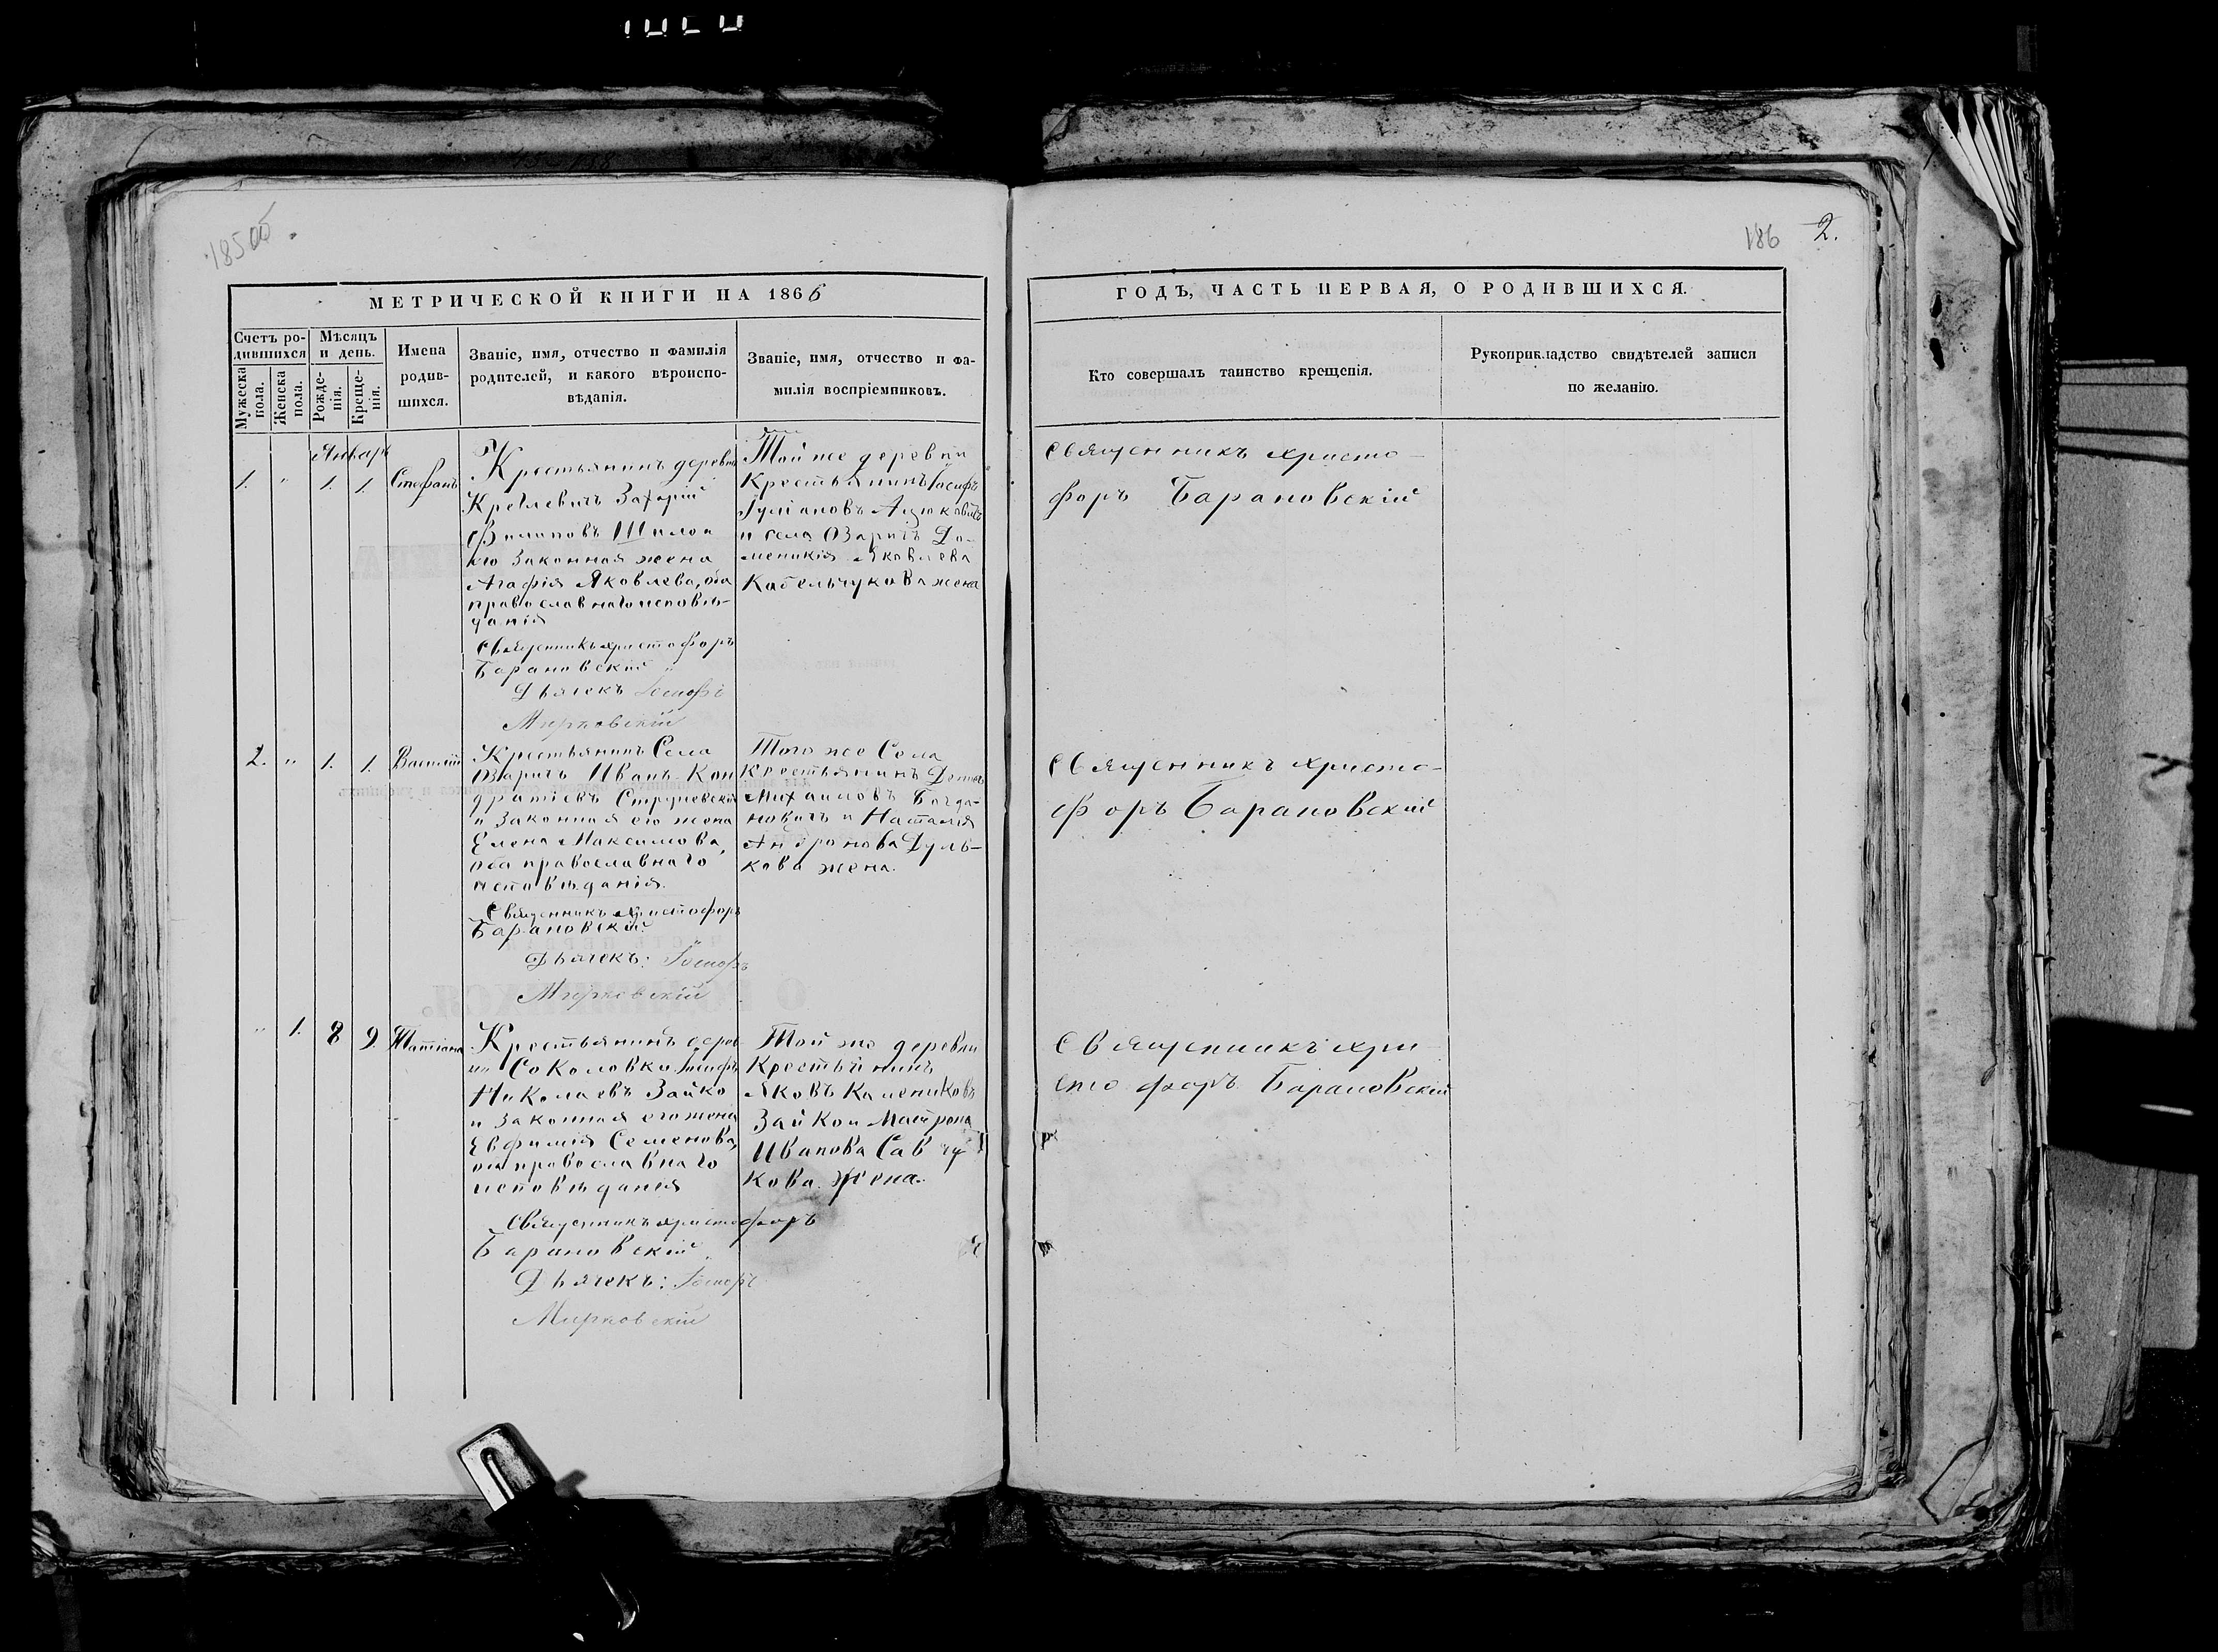 185об.
186 2.
МЕТРИЧЕСКОЙ КНИГИ НА 1866
ГОДЪ, ЧАСТЬ ПЕРВАЯ, О РОДИВШИХСЯ.
Счетъ ро-
дившихся
Мужеска пола.
Женска пола.
Мѣсяцъ
и день.
Рожде-
нія.
Креще-
нія.
Имена
родив-
шихся.
Званіе, имя, отчество и фамилія
родителей, и какого вѣроиспо-
вѣданія.
Званіе, имя, отчество и фа-
милія воспріемниковъ.
Кто совершалъ таинство крещенія.
Рукоприкладство свидѣтелей записи
по желанію.
Январь
1. " 1. 1. Стефанъ
Крестьянинъ деревни
Захарій
Филиповъ Шило и
его законная жена
Агафія Яковлева, оба
православнаго исповѣ-
данія
Священникъ Христофоръ
Барановскій
Дьячекъ Іосифъ
Мирковскій
Той же деревни
крестьянинъ Іосифъ
и села Озаричъ До-
меникія Яковлева
Кобельчукова жена
Священникъ Христо-
форъ Барановскій
2. " 1. 1. Василій
Крестьянинъ Села
Озаричъ Иванъ Кон
дратіевъ
и законная его жена
Елена Максимова,
оба православнаго
исповѣданія.
Священникъ Христофоръ
Барановскій
Дьячекъ: Іосифъ
Мирковскій
Того же Села
Крестьянинъ
Михаиловъ Богда-
новичъ и Наталія
Андронова Дуль-
кова жена.
Священникъ Христо-
форъ Барановскій
" 1. 8 9. Татіана
Крестьянинъ дерев-
ни Соколовки Іосифъ
Николаевъ Зайко
и законная его жена
Евфимія Семенова,
оба православнаго
исповѣданія
Священникъ Христофоръ
Барановскій
Дьячекъ: Іосифъ
Мирковскій
Той же деревни
Крестьянинъ
Яковъ Калениковъ
Зайко и Матрона
Иванова Савчу
кова жена.
Священникъ Хри
стофоръ Барановскій